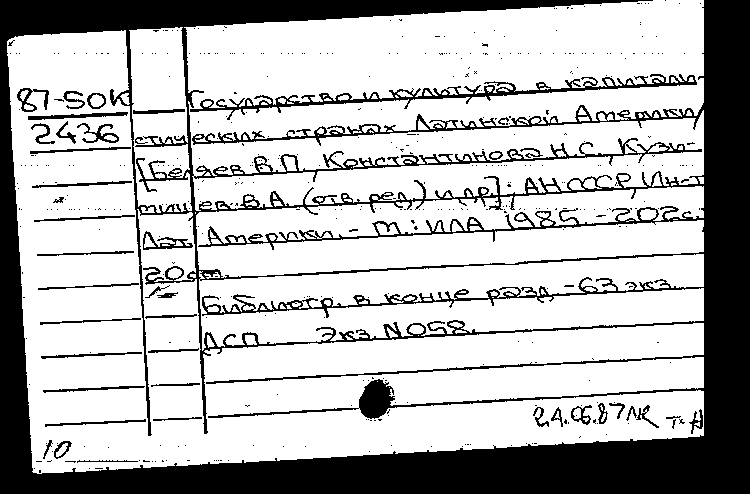 87-50К Государство и культура в капитали-
2436 стических странах Латинской Америки/
[Беляев В.П., Константинова Н.С., Кузи-
тищев В.А. (отв. ред.) и др]; АН СССР, Ин-т
Лат. Америки. - М.: ИЛА, 1985. - 202с.;
20см.
Библиогр. в конце разд. - 63 экз.
ДСП. Экз. N058.
24.06.87
10